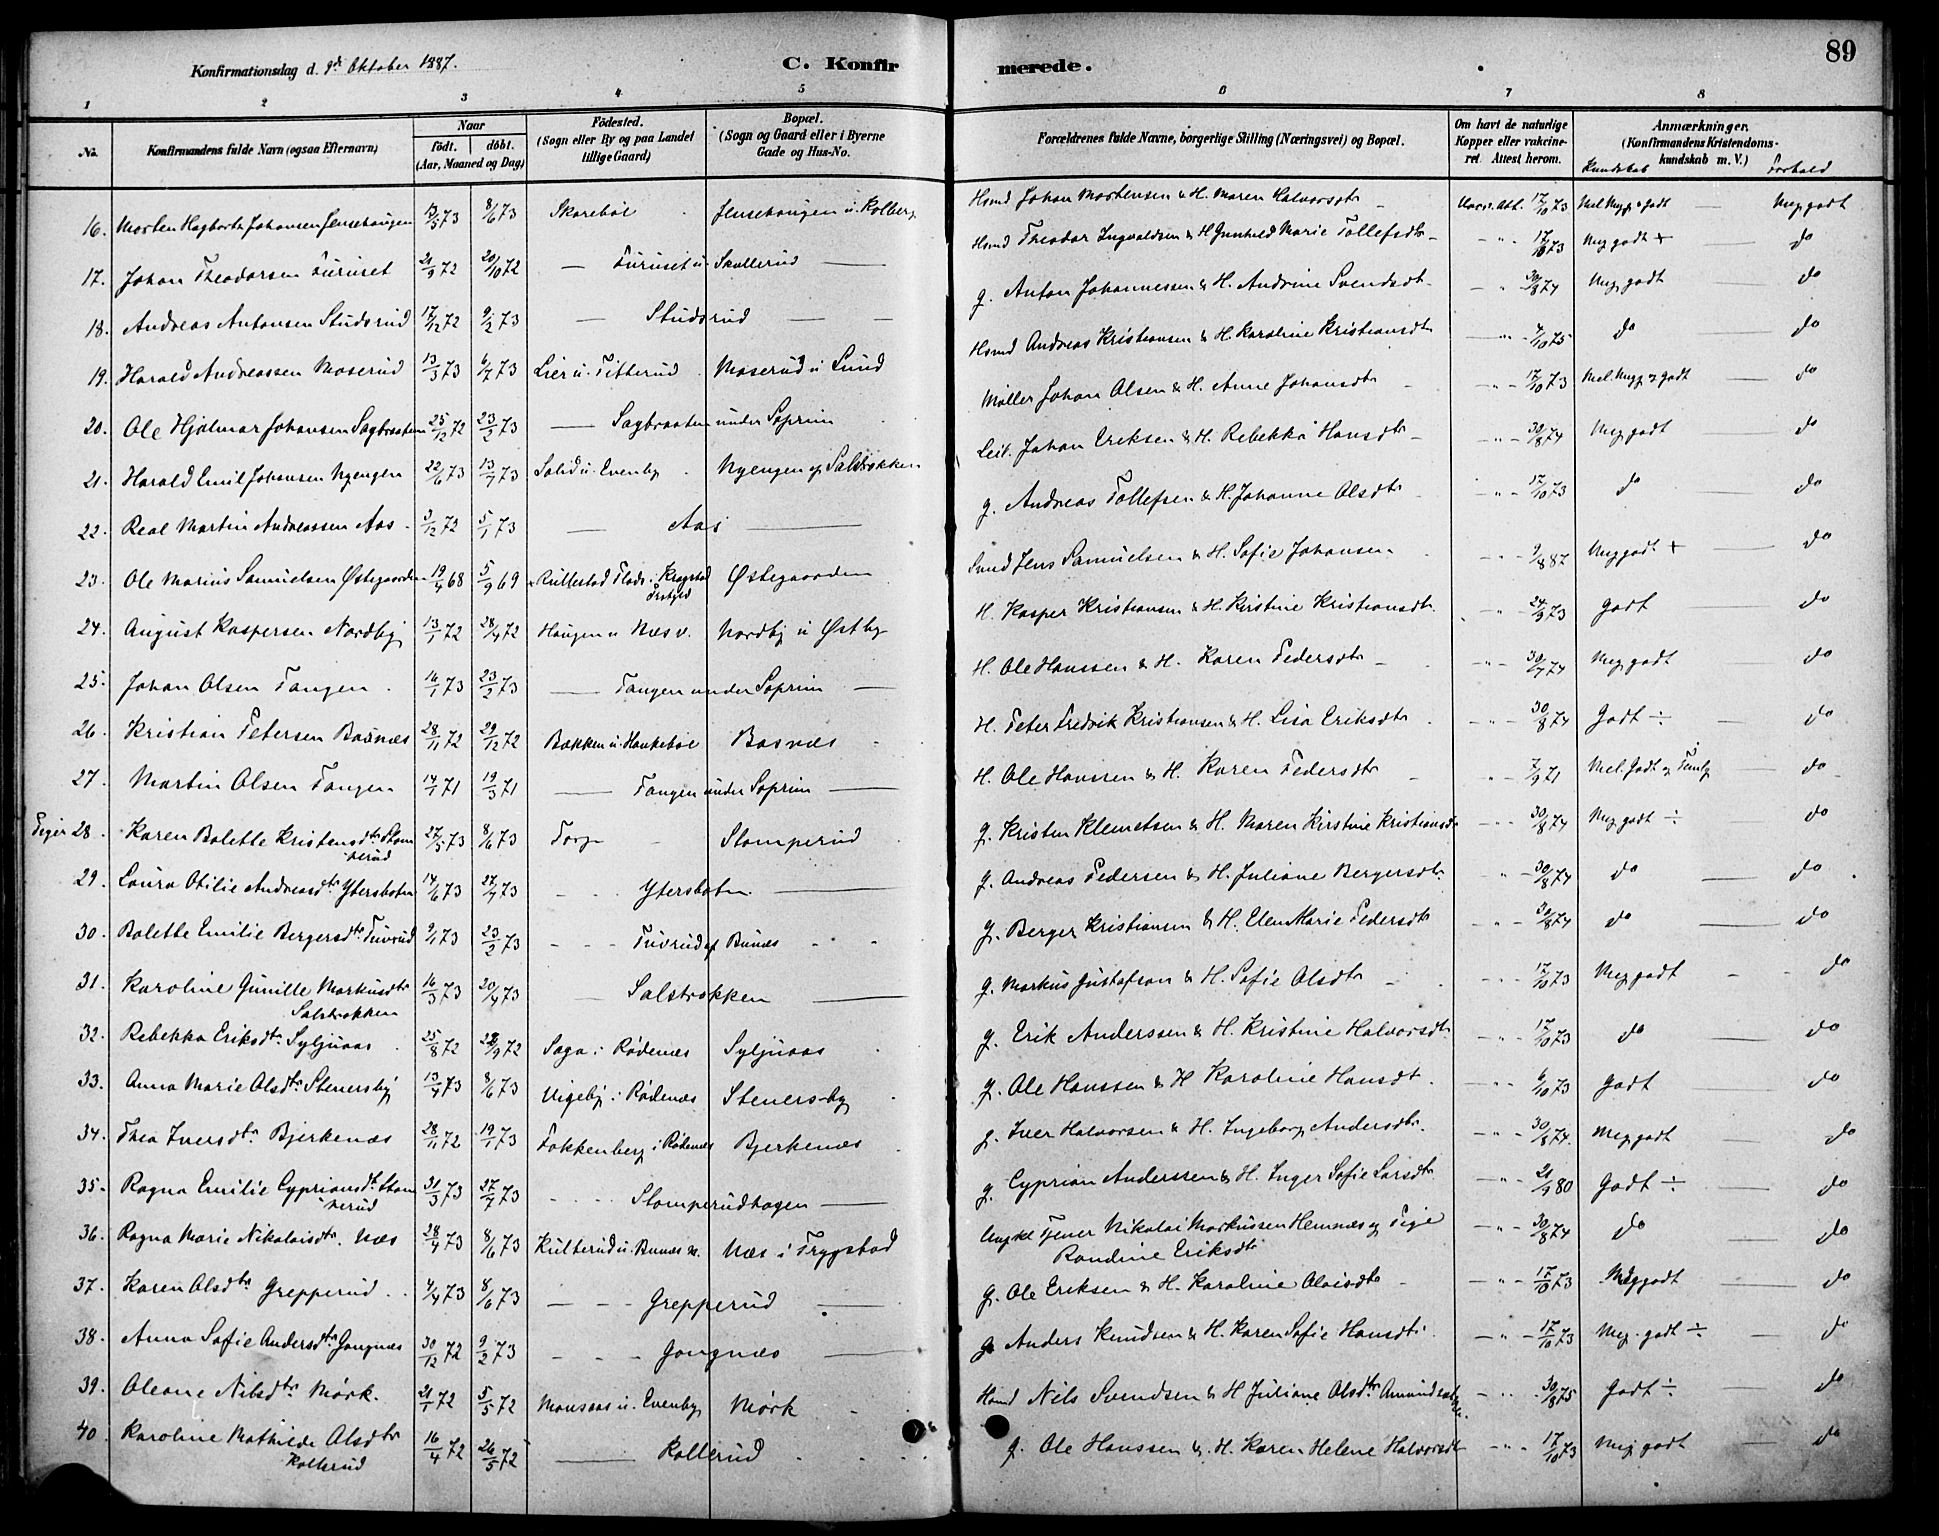 89
Konfirmationsdag d. 9de Oktober 1887.
C. Konfirmerede.
1 2 3 4 5 6 7 8
No. Konfirmandens fulde Navn (ogsaa Efternavn) Naar födt. döbt. (Aar, Maaned og Dag) Födested. (Sogn eller By og paa Landet tillige Gaard) Bopæl. (Sogn og Gaard eller i Byerne Gade og Hus-No. Forældrenes fulde Navne, borgerlige Stilling (Næringsvei) og Bopæl. Om havt de naturlige Kopper eller vakcineret. Attest herom. Anmærkninger. (Konfirmandens Kristendomskundskab m. V.)
Kundskab Forhold
16. Morten Hagbarth Johansen Jensehaugen 13/5 73 8/6 73 Skarebøl Jensehaugen u. Kolberg Hsmd Johan Mortensen & H. Maren Halvorsdtr Vacc. Att. 17/10 73 Mel. Meg. & Godt Meg godt
17. Johan Theodorsen Furuset 21/9 72 20/10 72 — Furuset u. Skullerud — Hsmd Theodor Ingvaldsen & H Gunhild Marie Tollefsdtr — " - 17/10 73 Meg godt + do
18. Andreas Antonsen Studsrud 17/12 72 9/2 73 — Studsrud — G. Anton Johannessen & H. Andrine Svendsdt. — " - 30/8 74 Meg godt do
19. Harald Andreassen Moserud 13/3 73 6/7 73 Lier u. Titterud Moserud u Lund Hsmd Andreas Kristiansen & H. Karoline Kristiansdtr — " - 4/10 75 do do
20. Ole Hjalmar Johansen Sagbraaten 25/12 72 23/2 73 — Sagbraaten under Soprim Møller Johan Olsen & H. Anne Johansdtr — " - 17/10 73 Mel. Meg. og godt — do
21. Harald Emil Johansen Nyengen 22/6 73 13/7 73 Solid u. Evenby Nyengen af Salstrokken Leil. Johan Eriksen & H. Rebekka Hansdtr — " - 30/8 74 Meg godt do
22. Real Martin Andreassen Aas 3/12 72 5/1 73 — Aas — G. Andreas Tollefsen & H. Johanne Olsdtr — " - 17/10 73 do — do
23. Ole Marius Samuelsen Østegaarden 19/4 68 5/9 69 Rullestad i Kragstad Østegaarden Jens Samuelsen & H. Sofie Johansen — " - 9/8 87 Meg godt + — do
24. August Kaspersen Nordby 13/1 72 28/4 72 Haugen u Næs v. Nordby u Østby H. Kasper Kristiansen & H. Kirstine Kristiansdtr. — " - 24/9 73 Godt do
25. Johan Olsen Tangen 16/1 73 23/2 73 — Tangen under Soprim — H. Ole Hanssen & H. Karen Pedersdtr — " - 30/7 74 Meg godt do
26. Kristian Petersen Basnæs 28/11 72 29/12 72 Bakken u. Haukebøl Basnæs H. Peter Fredrik Kristiansen & H. Lisa Eriksdtr — " - 30/8 74 Godt ÷ do
27. Martin Olsen Tangen 14/1 71 19/3 71 — Tangen under Soprim — H. Ole Hanssen & H. Karen Pedersdtr — " - 7/9 71 Mel. Godt og do
Piger 28. Karen Bolette Kristensdtr Stomperud 27/5 73 8/6 73 Torp Stomperud G. Kristen Klemetsen & H. Maren Kirstine Kristiansdr — " - 30/8 74 Meg godt ÷ do
29. Laura Otilie Andreasdtr Yterskoten 14/6 73 27/7 73 - - Yterskoten — G. Andreas Pedersen & H. Juliane Bergersdtr — " - 30/8 74 do — do
30. Bolette Emilie Bergersdtr Tuvrud 9/1 73 23/2 73 - - - Tuvrud af Bunæs G. Berger Kristiansen & H. Elen Marie Pedersdtr — " - 30/8 74 do — do
31. Karoline Gunille Markusdtr Salstrokken 16/3 73 20/4 73 — Salstrokken — G. Markus Gustafson & H. Sofie Olsdtr — " - 17/10 73 Meg godt - - do
32. Rebekka Eriksdtr Syljuaas 25/8 72 22/9 72 Saga i Rødenæs Syljuaas G. Erik Anderssen & H. Kristine Halvorsdtr — " - 17/10 73 do — do
33. Anna Marie Olsdtr Stenersby 13/4 73 8/6 73 Vigeby i Rødenæs Stenersby G. Ole Hanssen & H Karoline Hansdt. — " - 6/10 73 Godt do
34. Thea Iversdtr. Bjerkenæs 28/11 72 19/1 73 Fokkenberg i Rødenæs Bjerkenæs G. Iver Halvorsen & H. Ingeborg Andersdtr. — " - 30/8 74. Meg godt do
35. Ragna Emilie Cypriansdt. Stomperud 31/3 73 27/7 73 - - - Stomperudhagen — G. Cyprian Anderssen & H. Inger Sofie Larsdtr — " - 21/9 80 Godt ÷ — do
36. Ragna Marie Nikolaisdtr. Næs 28/4 73 8/6 73 Kulterud u. Bunæs Næs i Trygstad Ungkl Tjener Nikolai Markussen Hemnæs og Pige Randine Eriksdtr — " - 30/8 74 do — do
37. Karen Olsdtr Grepperud 4/4 73 8/6 73 — - - Grepperud — G. Ole Eriksen & H. Karoline Olaisdtr — " - 17/10 73 Meg godt — do
38. Anna Sofie Andersdtr Gangnæs 30/12 72 9/2 73 - - - Gangnæs — G Anders Knudsen & H. Karen Sofie Hansdtr. — " - 17/10 73 Meg. godt ÷ — do
39. Oleane Nilsdtr Mørk. 21/1 72 5/5 72 Monsaas u. Evenby Mørk Hsmd Nils Svendsen & H Juliane Olsdtr — " - 30/8 75 Godt ÷ — do
40. Karoline Mathilde Olsdtr Kollerud 16/4 72 26/5 72 — Kollerud G. Ole Hanssen & H. Karen Helene Halvorsdt — " - 17/10 73 Meg godt — do